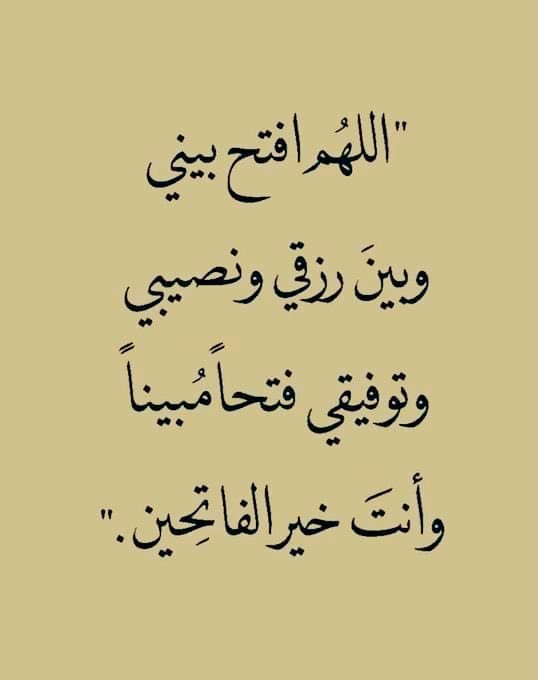 "اللهُم افتح بيني
وبينَ رزقي ونصيبي
وتوفيقي فتحاً مُبيناً
وأنتَ خير الفاتِحين ."